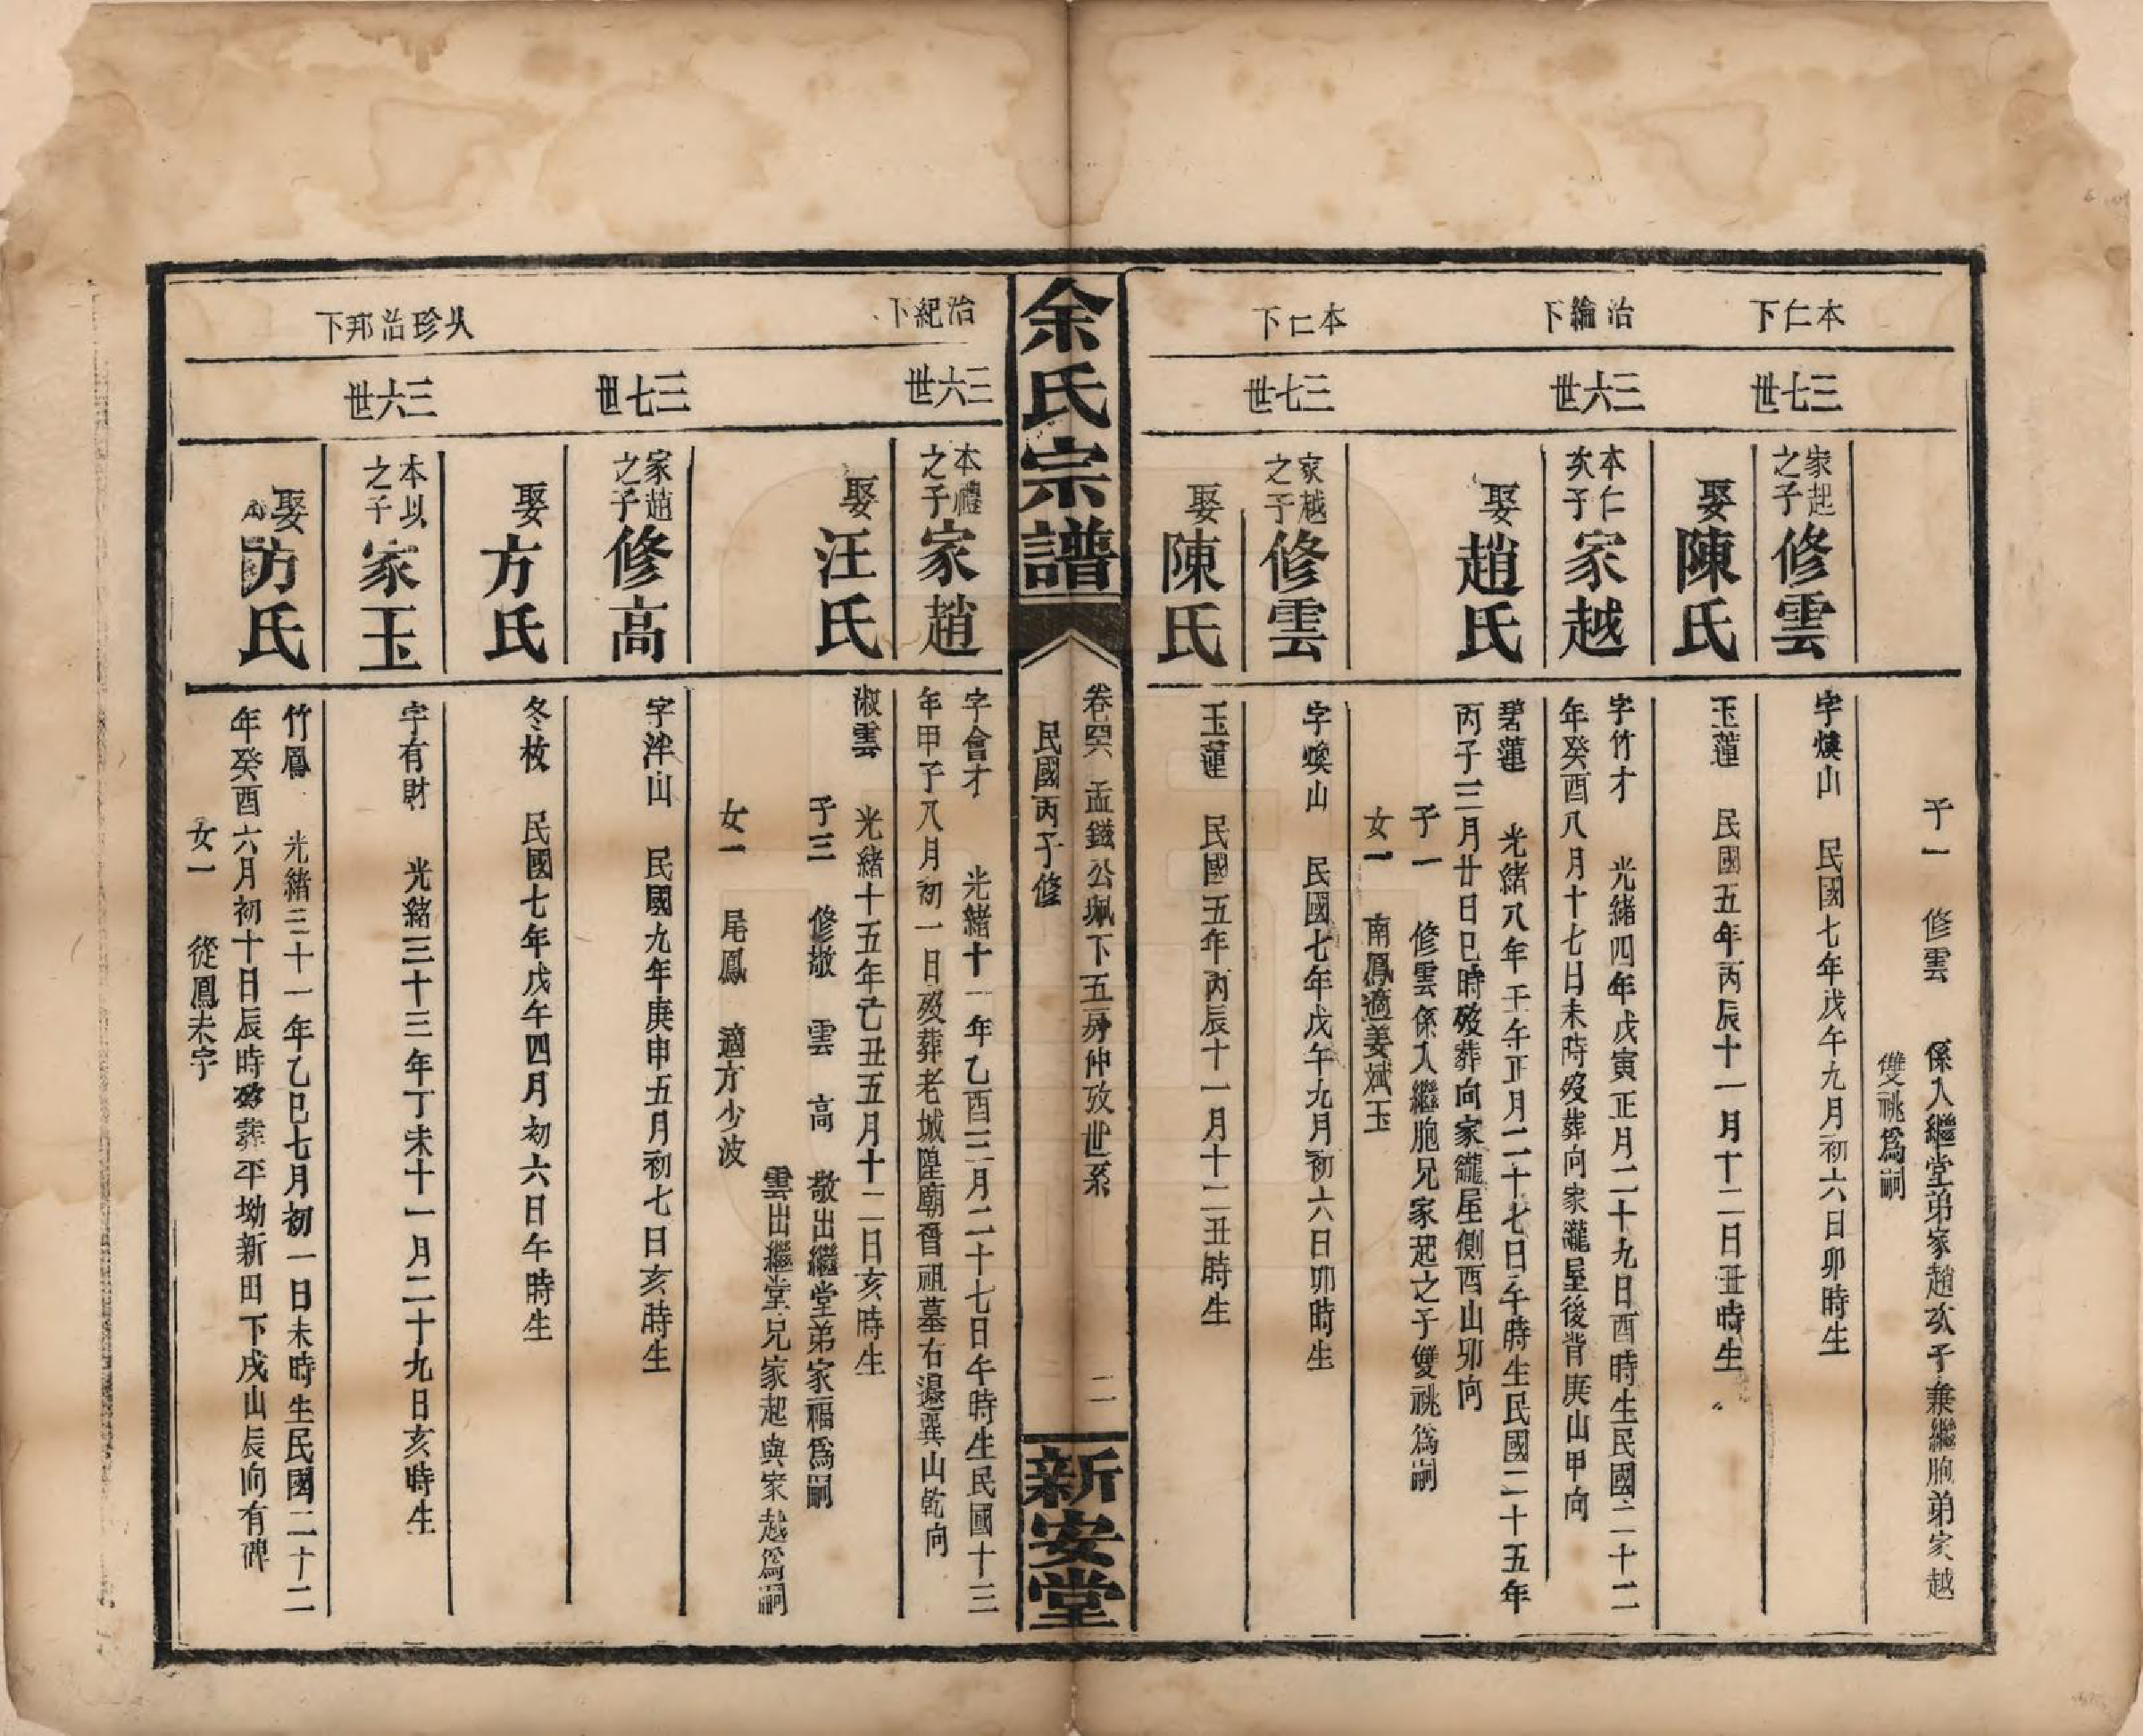 本仁下
治綸下
本仁下
三七世
三六世
三七世
子一　修雲　係入繼堂弟家趙次子兼繼胞弟家越
雙祧爲嗣
家起之子　修雲
字煥山　民國七年戊午九月初六日卯時生
娶陳氏
玉蓮　民國五年丙辰十一月十二日丑時生
本仁次子　家越
字竹才　光緒四年戊寅正月二十九日酉時生民國二十二
年癸酉八月十七日未時歿葬向家瀧屋後背庚山甲向
娶趙氏
碧蓮　光緒八年壬午正月二十七日午時生民國二十五年
丙子三月廿日巳時歿葬向家瀧屋側酉山卯向
子一　修雲係入繼胞兄家起之子雙祧爲嗣
女一　南鳳適姜斌玉
家越之子　修雲
字煥山　民國七年戊午九月初六日卯時生
娶陳氏
玉蓮　民國五年丙辰十一月十二丑時生
余氏宗譜
卷四六　孟鎡公珮下五房仲攷世系
民國丙子修
二
新安堂
治紀下
以珍治邦下
三六世
三七世
三六世
本禮之子　家趙
字會才　光緒十一年乙酉三月二十七日午時生民國十三
年甲子八月初一日歿葬老城隍廟晉祖墓右邊巽山乾向
娶汪氏
淑雲　光緒十五年己丑五月十二日亥時生
子三　修敬　雲　高　敬出繼堂弟家福爲嗣
雲出繼堂兄家起與家越爲嗣
女一　尾鳳　適方少波
家趙之子　修高
字泮山　民國九年庚申五月初七日亥時生
娶方氏
冬枚　民國七年戊午四月初六日午時生
本以之子　家玉
字有財　光緒三十三年丁未十一月二十九日亥時生
娶方氏
竹鳳　光緒三十一年乙巳七月初一日未時生民國二十二
年癸酉六月初十日辰時歿葬平坳新田下戌山辰向有碑
女一　從鳳未字